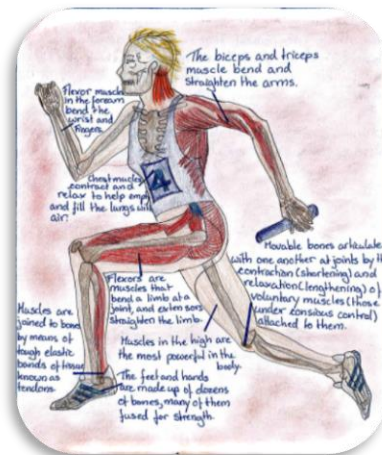 The biceps and triceps
muscle bend and
straighten the arms.
Flexor muscles
in the forearm
bend the
wrist and
fingers.
Chest muscles
contract and
relax to help empty
and fill the lungs with
air.
4
Movable bones articulate
with one another at joints by the
contraction (shortening) and
relaxation (lengthening) of
voluntary muscles (those
under consious control)
attached to them.
Flexors are
muscles that
bend a limb at a
joint, and extensors
straighten the limb.
Muscles are
joined to bone
by means of
tough elastic
bands of tissue
known as
tendons.
Muscles in the high are
the most powerful in the
body.
The feet and hands
are made up of dozens
of bones, many of them
fused for strength.